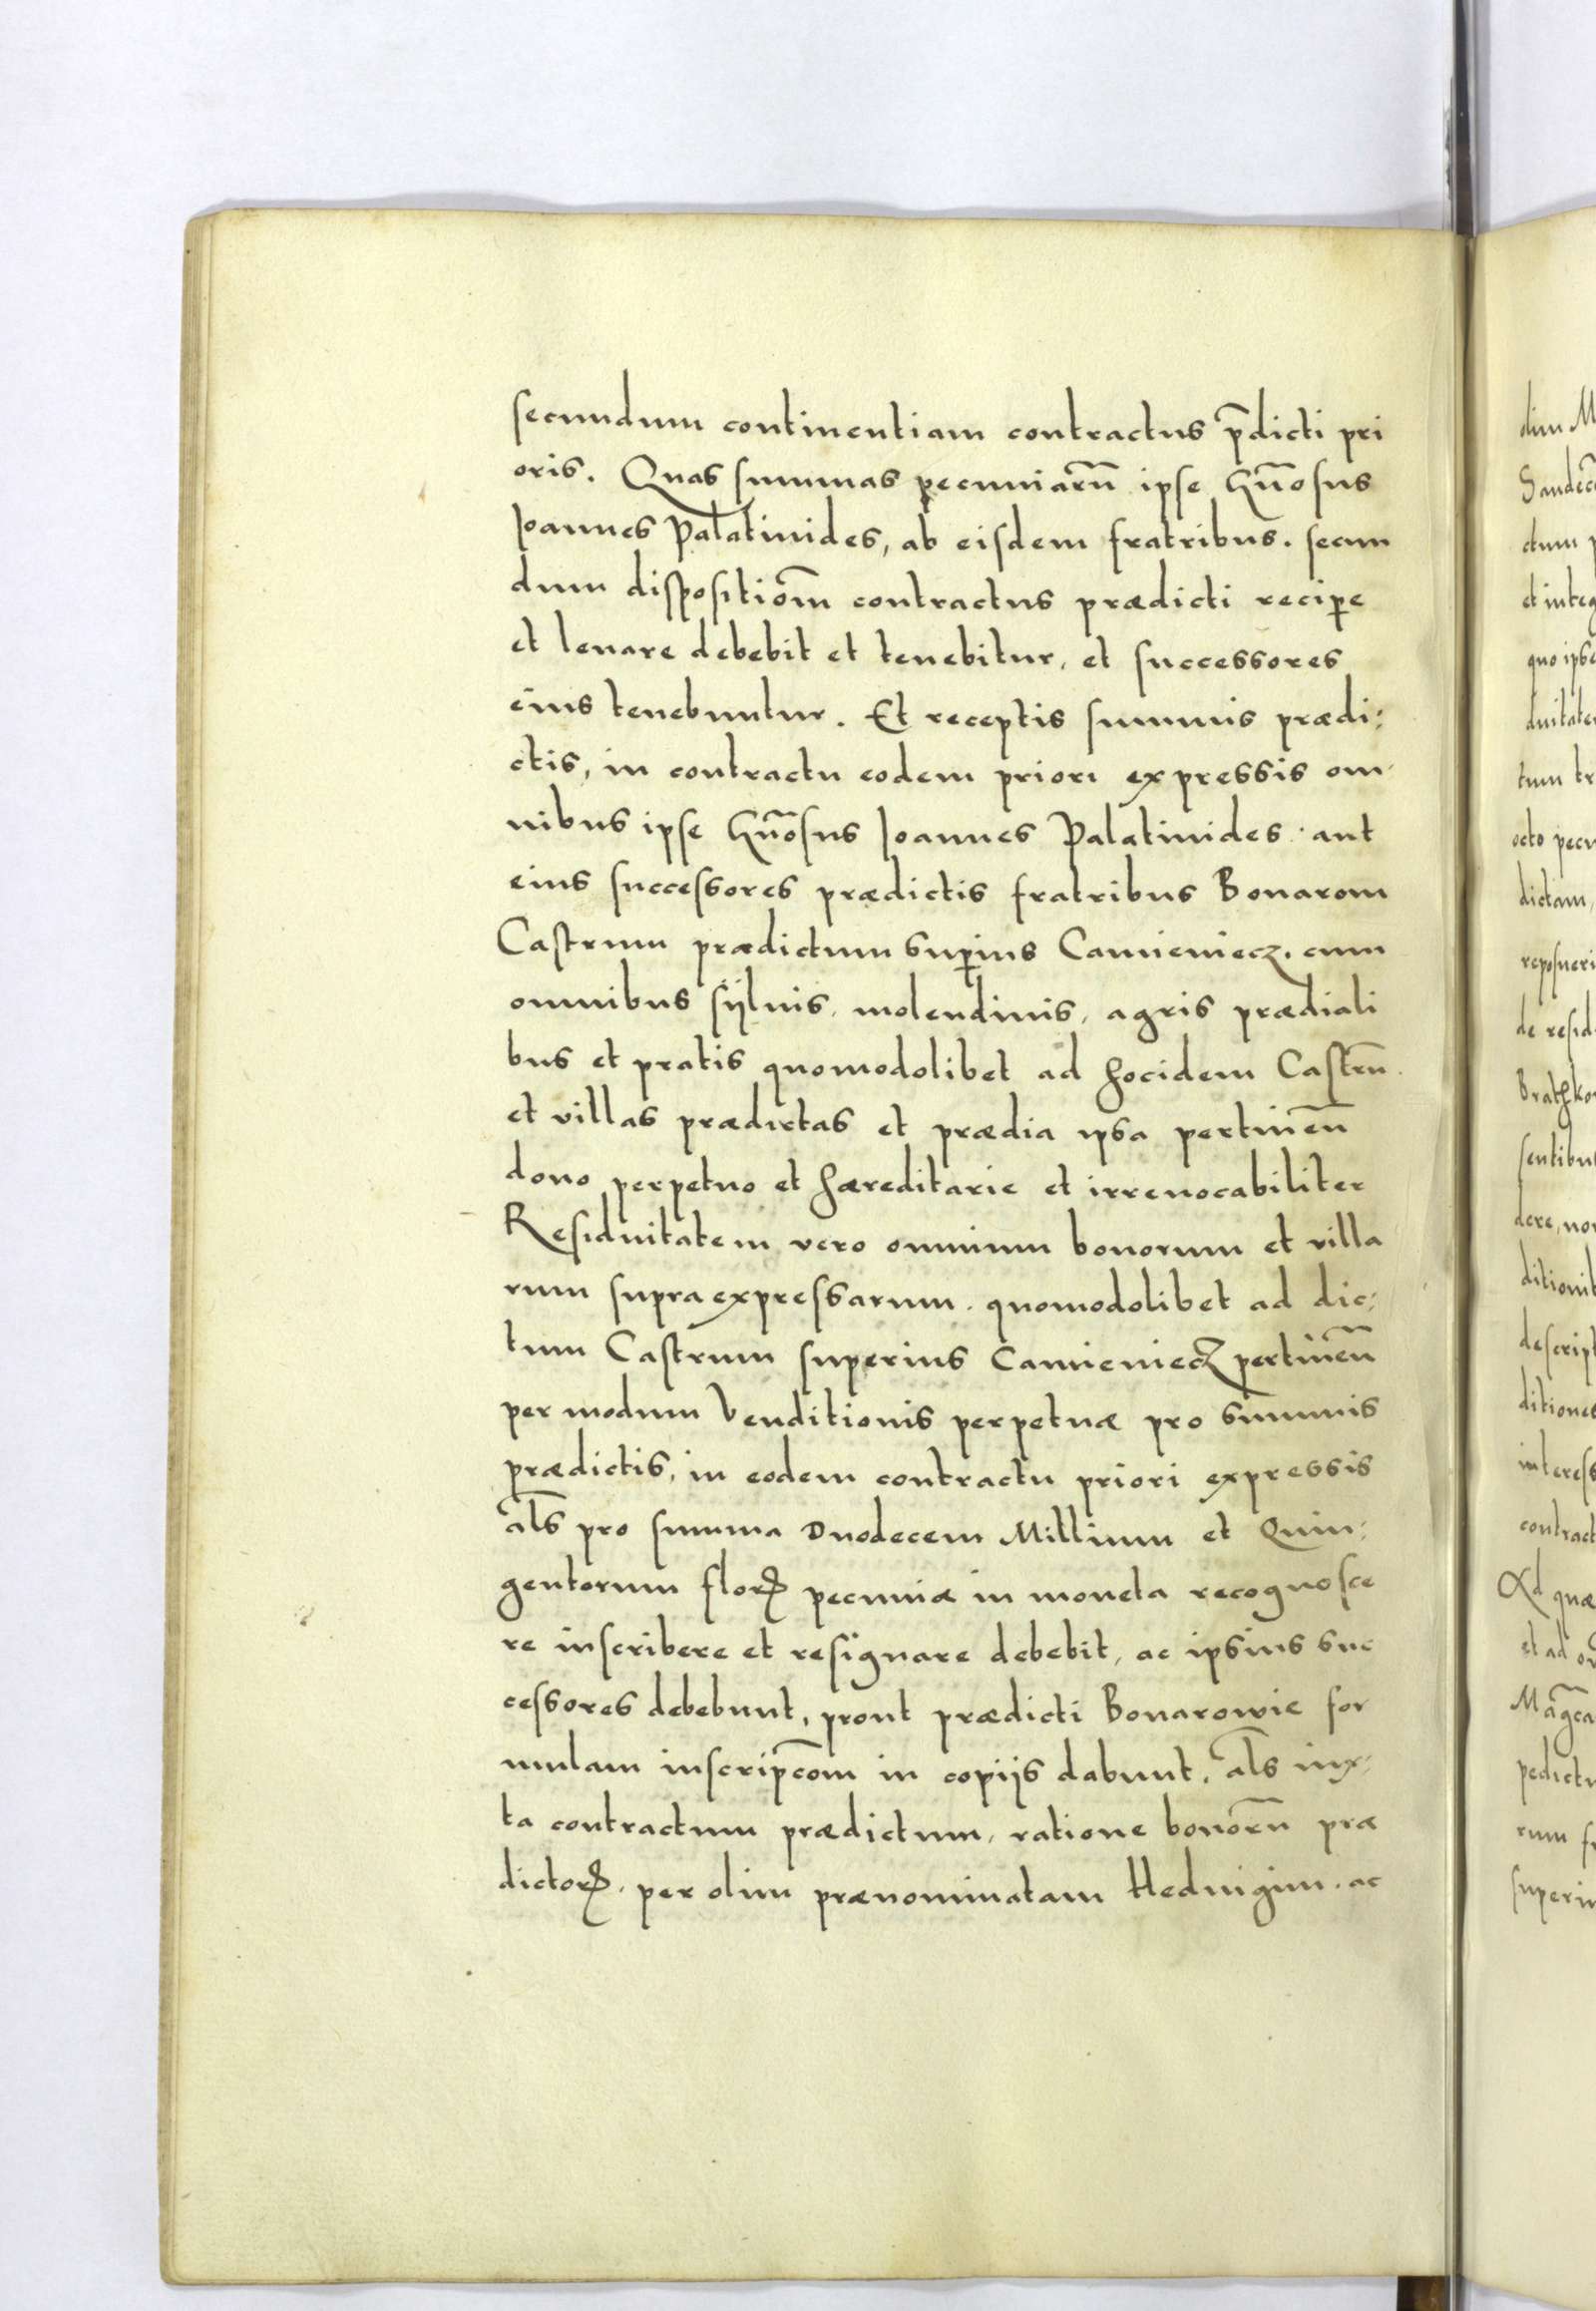 secundum continentiam contractus p̄dicti pri
oris. Quas summas pecuniarū ipse Gn̄osus
Joannes Palatinides, ab eisdem fratribus. secun
dum dispositiom̄ contractus prædicti recip̄e
et leuare debebit et tenebitur, et successores
eius tenebuntur. Et receptis summis prædi:
ctis, in contractu eodem priori expressis om
nibus ipse Gn̄osus Joannes Palatinides. aut
eius successores prædictis fratribus Bonarom
Castrum prædictum sup̄ius Camieniecz. cum
omnibus sijluis, molendinis, agris prædiali
bus et pratis quomodolibet ad hocidem Castrū
et villas prædictas et prædia ipsa pertineñ
dono perpetuo et hæreditarie et irreuocabiliter
Residuitatem vero omnium bonorum et villa
rum supraexpressarum. quomodolibet ad dic:
tum Castrum superius Camieniecz pertineñ
per modum Venditionis perpetuæ pro summis
prædictis, in eodem contractu priori expressis
al̄s pro summa Duodecem Millium et Quin:
gentorum florꝝ pecuniæ in moneta recognosce
re inscribere et resignare debebit, ac ipsius suc
cessores debebunt, prout prædicti Bonarowie for
mulam inscripc̄om in copijs dabunt, al̄s iux:
ta contractum prædictum, ratione bonorū præ
dictorꝝ. per olim prænominatam Heduigim. ac